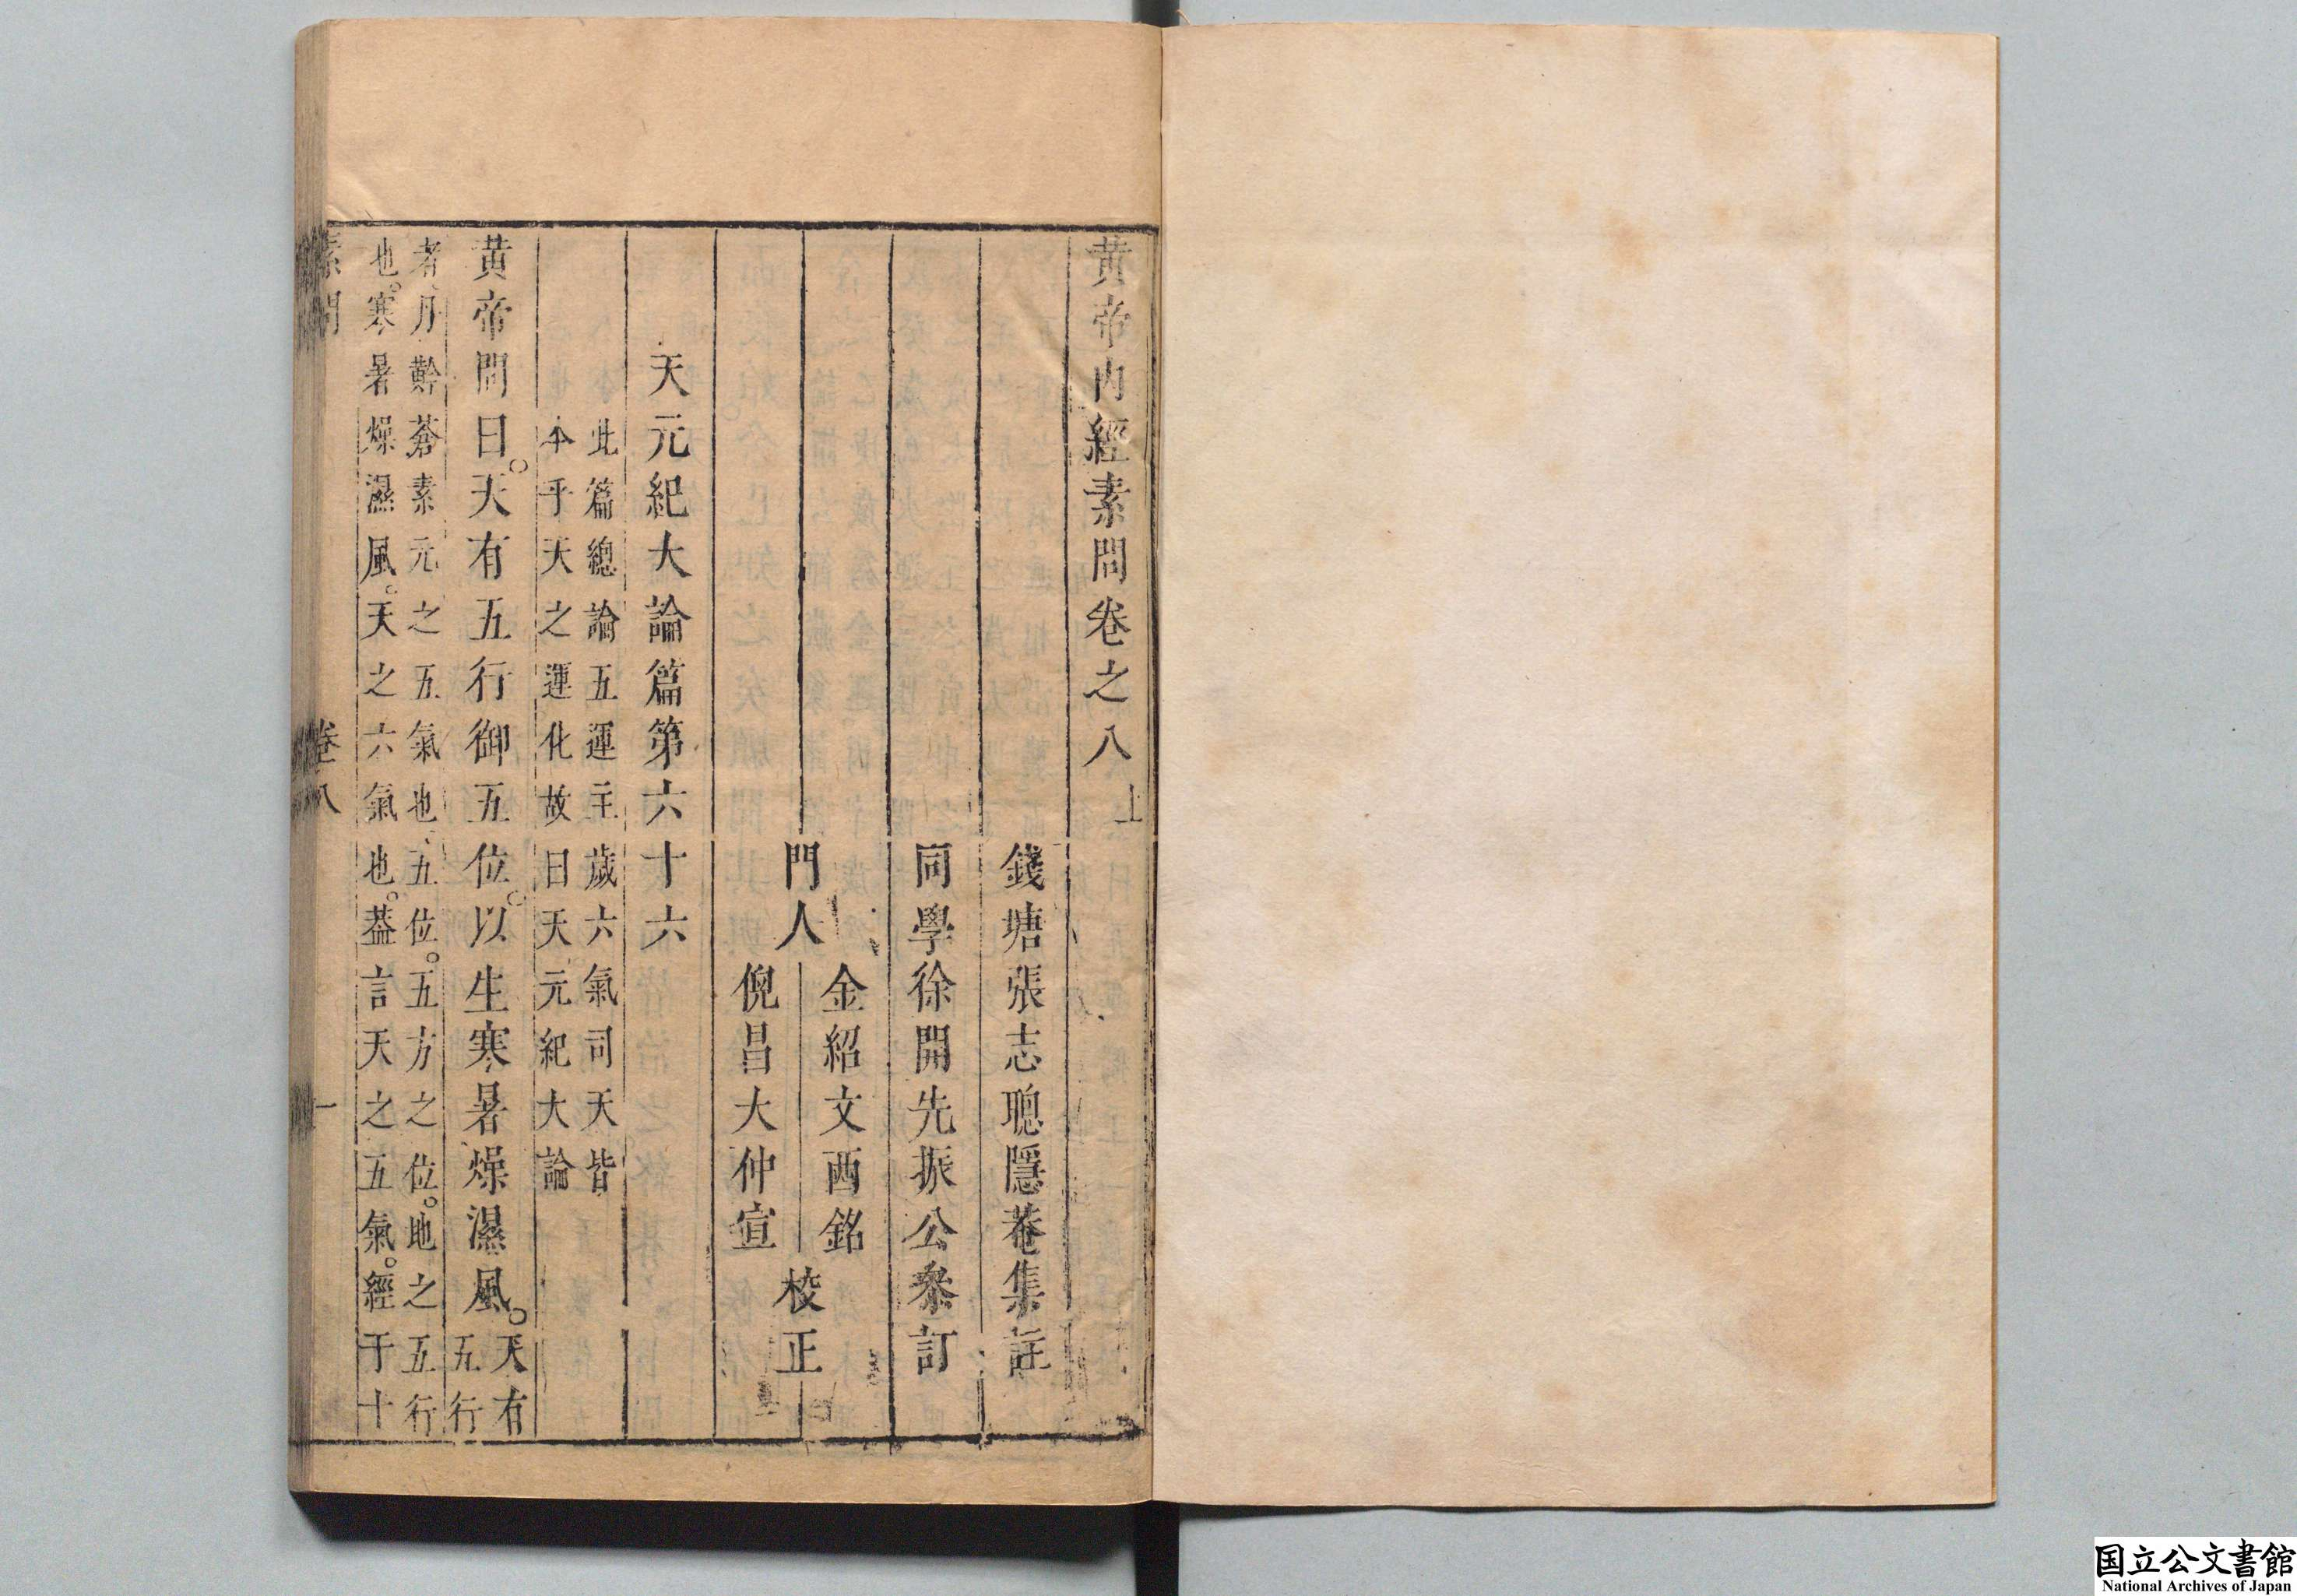 黄帝內經素問卷之八上
錢塘張志聰隱菴集註
同學徐開先振公叅訂
門人
金紹文酉銘
倪昌大仲宣
校正
天元紀大論篇第六十六
此篇總論五運主歲六氣司天皆
本乎天之運化故曰天元紀大論
黄帝問曰。天有五行御五位。以生寒暑燥濕風。天有
五行
者丹黅蒼素元之五氣也五位。五方之位。地之五行
也。寒暑燥濕風。天之六氣也。葢言天之五氣。經于十
素問
卷八
一
国立公文書館
National Archives of Japan